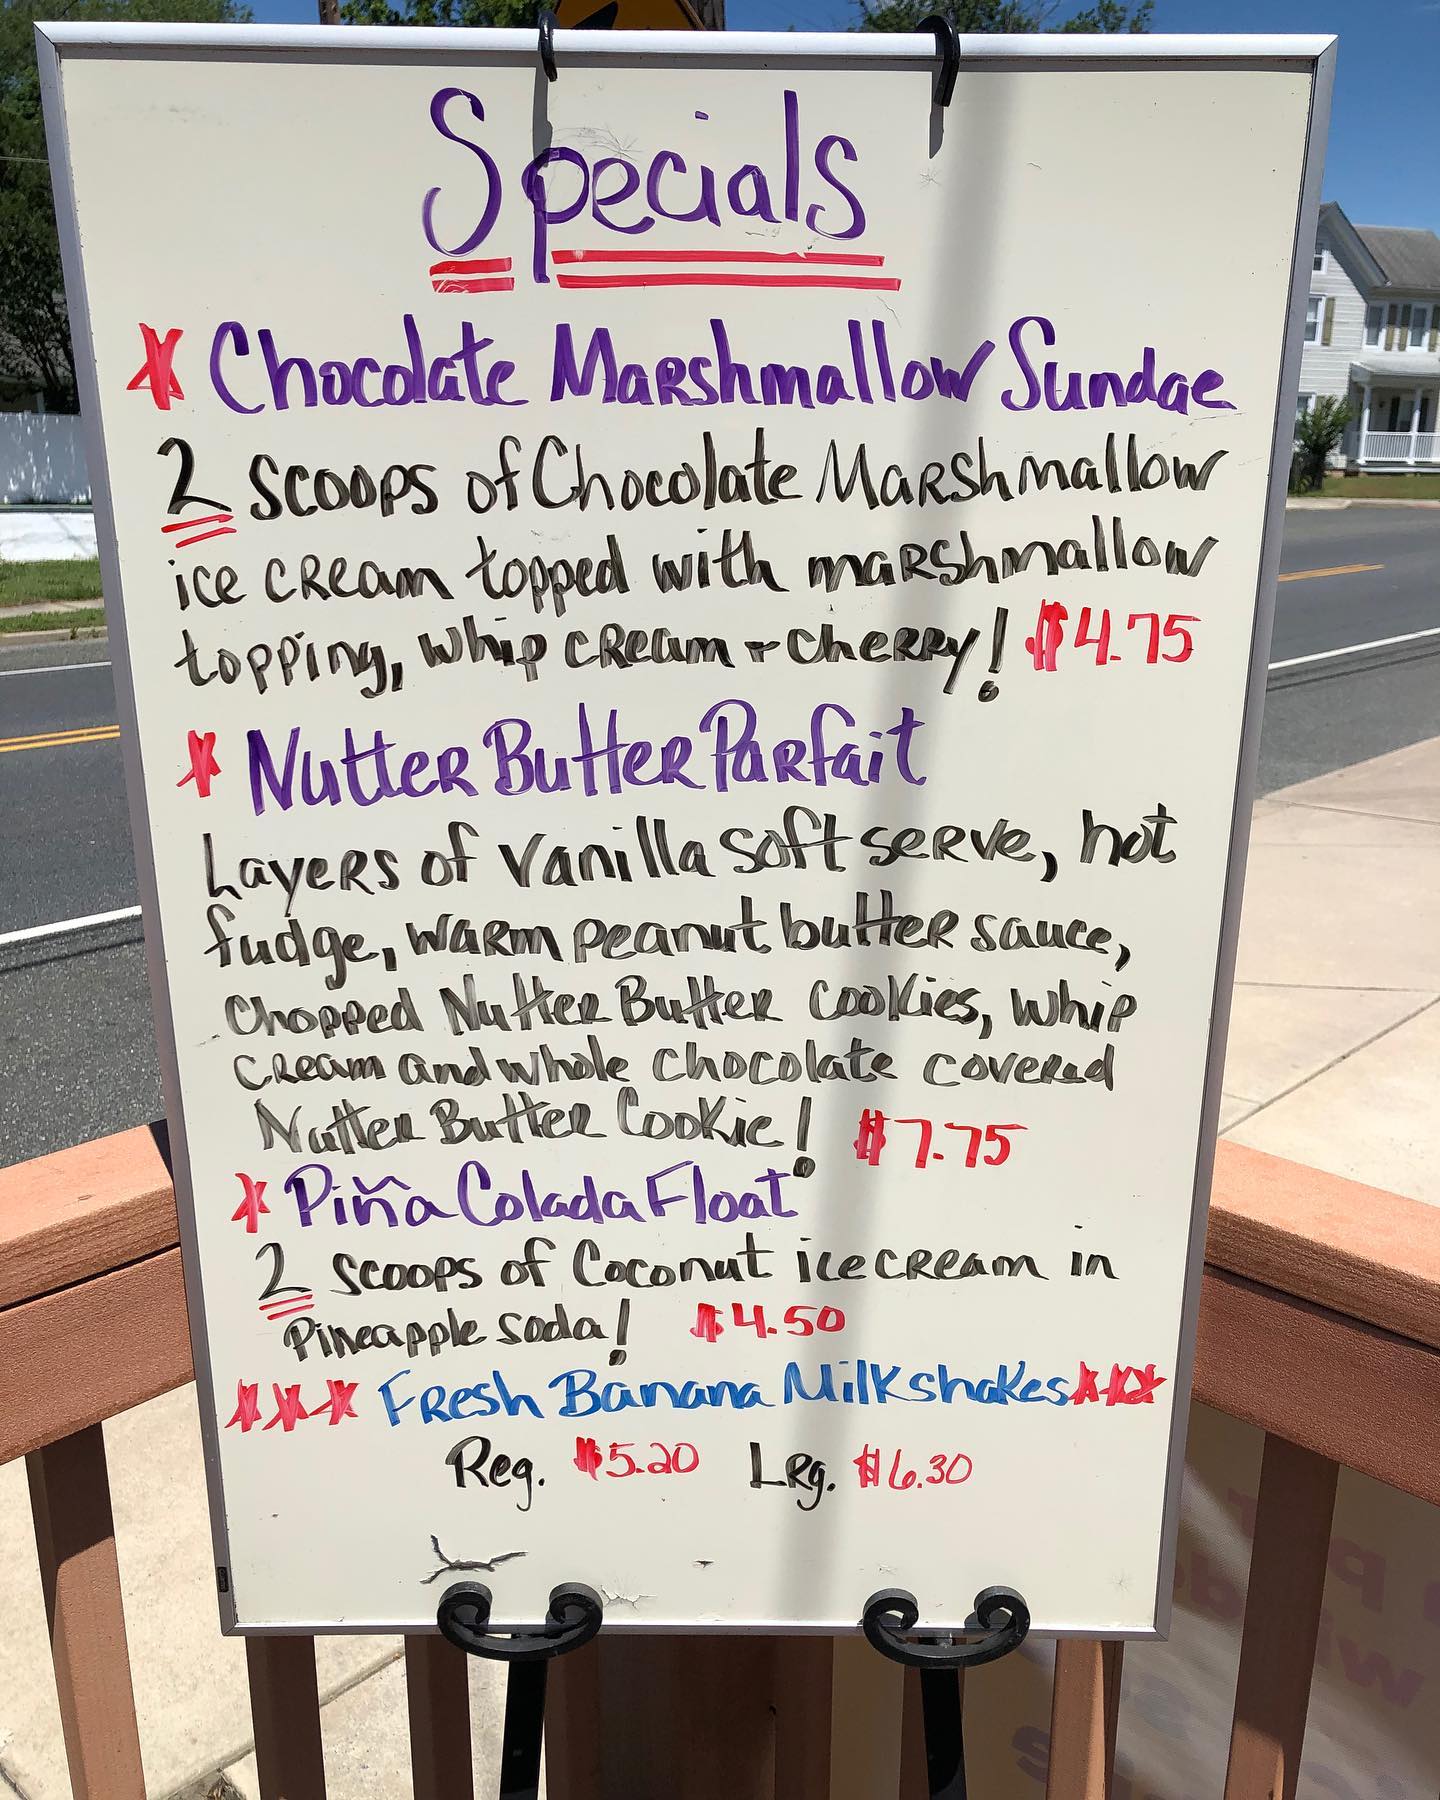 Specials
* Chocolate Marshmallow Sundae
2 scoops of Chocolate Marshmallow
ice cream topped with marshmallow
topping, whip cream + cherry! $4.75
* Nutter Butter Parfait
Layers of vanilla soft serve, hot
fudge, warm peanut butter sauce,
Chopped Nutter Butter Cookies, whip
cream and whole chocolate covered
Nutter Butter Cookie! $7.75
* Piña Colada Float
2 scoops of Coconut ice cream in
Pineapple soda! $4.50
*** Fresh Banana Milkshakes ***
Reg. $5.20 Lrg. $6.30